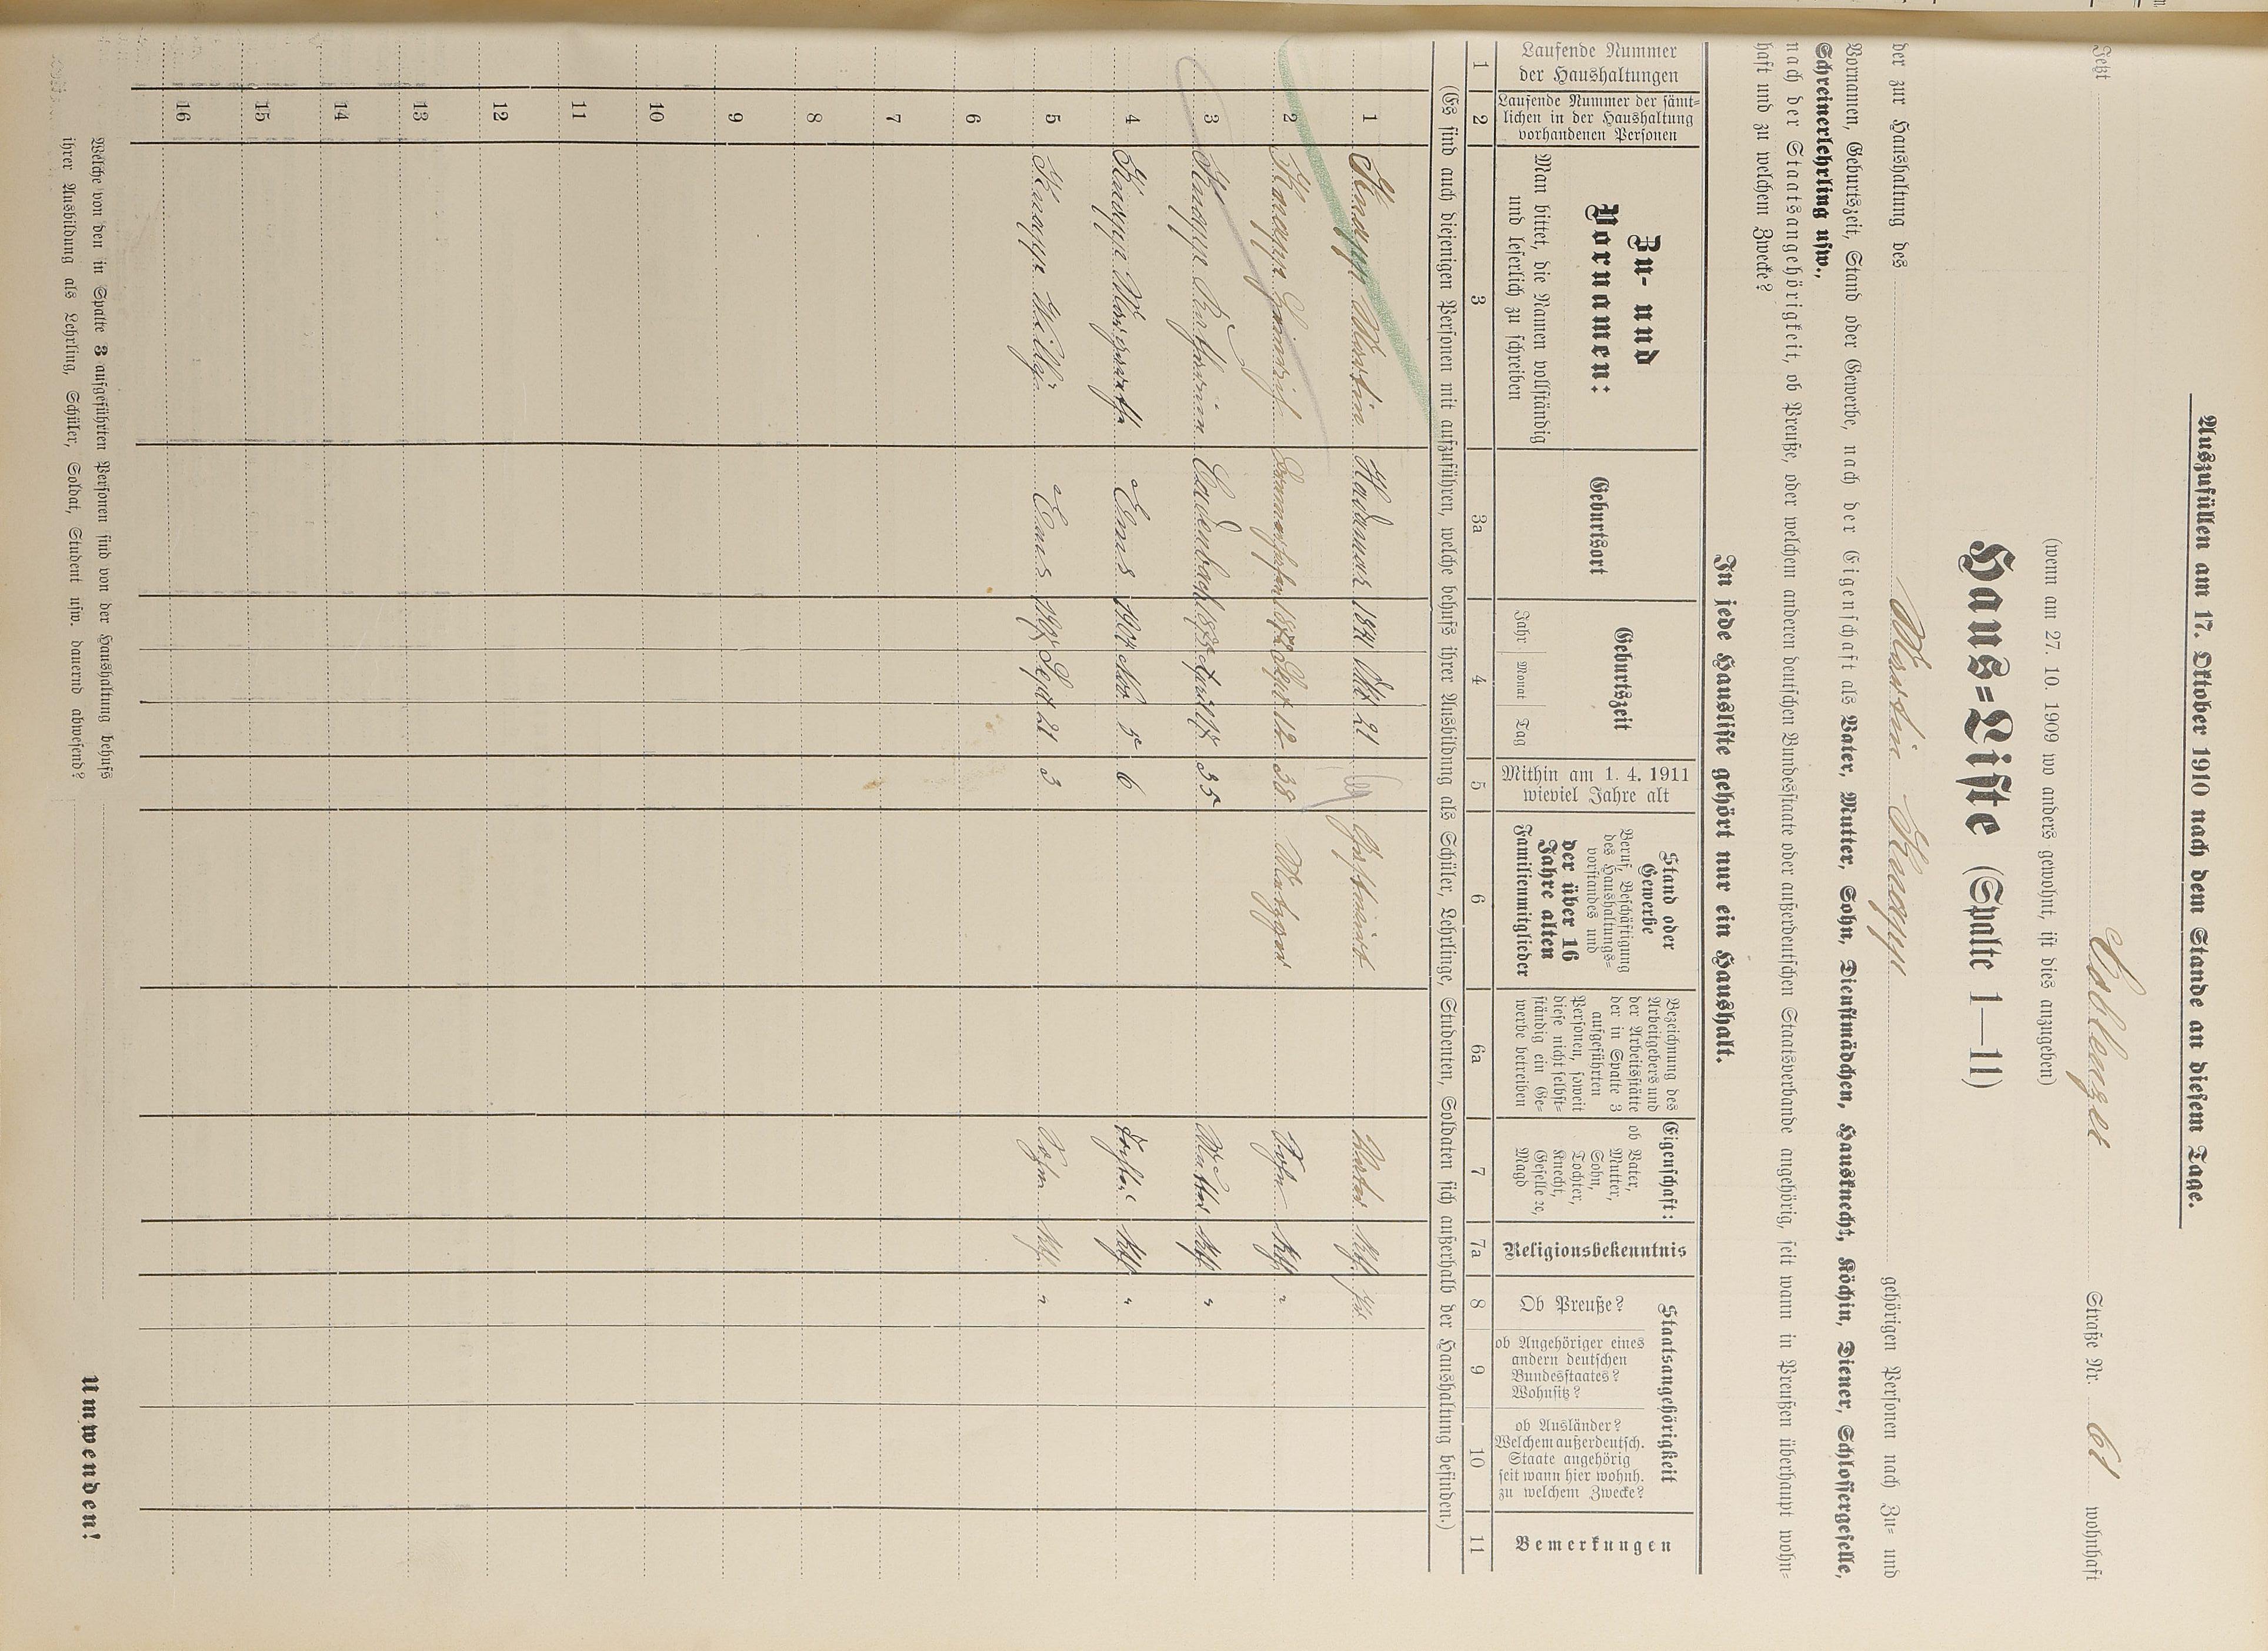 Auszufüllen am 17. Oktober 1910 nach dem Stande an diesem Tage.
Jetzt Coblenzer Straße Nr. 61 wohnhaft
(wenn am 27. 10. 1909 wo anders gewohnt, ist dies anzugeben)
Haus=Liste (Spalte 1—11)
der zur Haushaltung des Martin Knapp gehörigen Personen nach Zu= und
Vornamen, Geburtszeit, Stand oder Gewerbe, nach der Eigenschaft als Vater, Mutter, Sohn, Dienstmädchen, Hausknecht, Köchin, Diener, Schlossergeselle,
Schreinerlehrling usw.,
nach der Staatsangehörigkeit, ob Preuße, oder welchem anderen deutschen Bundesstaate oder außerdeutschen Staatsverbande angehörig, seit wann in Preußen überhaupt wohn=
haft und zu welchem Zwecke?
In jede Hausliste gehört nur ein Haushalt.
Laufende Nummer
der Haushaltungen
Laufende Nummer der sämt=
lichen in der Haushaltung
vorhandenen Personen
Zu- und
Vornamen:
Man bittet, die Namen vollständig
und leserlich zu schreiben
Geburtsort
Geburtszeit
Jahr Monat Tag
Mithin am 1. 4. 1911
wieviel Jahre alt
Stand oder
Gewerbe
Beruf, Beschäftigung
des Haushaltungs=
vorstandes und
der über 16
Jahre alten
Familienmitglieder
Bezeichnung des
Arbeitgebers und
der Arbeitsstätte
der in Spalte 3
aufgeführten
Personen, soweit
diese nicht selbst=
ständig ein Ge=
werbe betreiben
Eigenschaft:
ob Vater,
Mutter,
Sohn,
Tochter,
Knecht,
Geselle ꝛc,
Magd
Religionsbekenntnis
Staatsangehörigkeit
Ob Preuße?
ob Angehöriger eines
andern deutschen
Bundesstaates?
Wohnsitz?
ob Ausländer?
Welchem außerdeutsch.
Staate angehörig
seit wann hier wohnh.
zu welchem Zwecke?
Bemerkungen
1 2 3 3a 4 5 6 6a 7 7a 8 9 10 11
(Es sind auch diejenigen Personen mit aufzuführen, welche behufs ihrer Ausbildung als Schüler, Lehrlinge, Studenten, Soldaten sich außerhalb der Haushaltung befinden.)
1 Knapp Martin Hadamar Okt 21 Vater Kth. Ja
2 Knapp Heinrich 1872 Sept 12 38 Metzger Sohn Kth. "
3 Knapp Katharina Cadenbach 1875 17 35 Mutter Kth. "
4 Knapp Margareth Ems 1904 Nov 5 6 Tochter Kth. "
5 Knapp Willy Ems 1907 Sept 21 3 Sohn Kth. "
6
7
8
9
10
11
12
13
14
15
16
Welche von den in Spalte 3 aufgeführten Personen sind von der Haushaltung behufs
ihrer Ausbildung als Lehrling, Schüler, Soldat, Student usw. dauernd abwesend?
Umwenden!